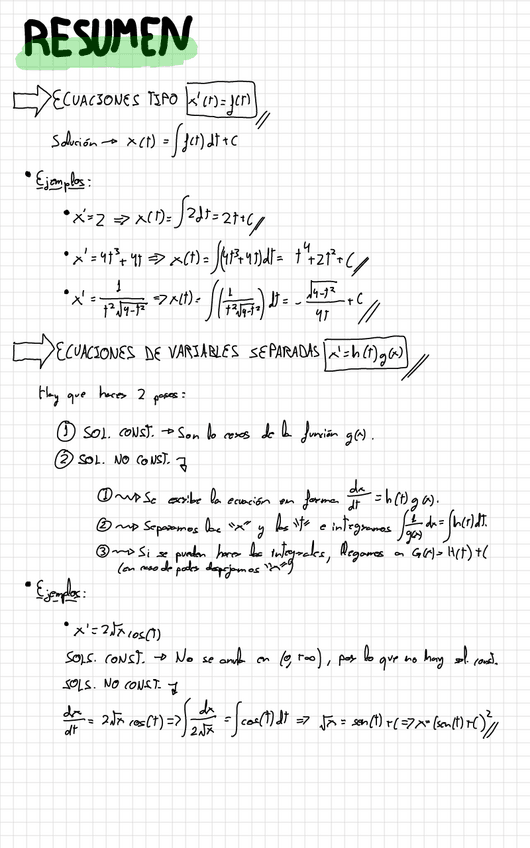 RESUMEN
⇒ ECUACIONES TIPO x'(t) = f(t)
Solución → x(t) = ∫ f(t) dt + C
• Ejemplos:
• x' = 2 ⇒ x(t) = ∫ 2dt = 2t + C
• x' = 4t³ + 4t ⇒ x(t) = ∫ (4t³ + 4t) dt = t⁴ + 2t² + C
• x' = 1/(t²√(4-t²)) ⇒ x(t) = ∫ (1/(t²√(4-t²))) dt = - √(4-t²)/(4t) + C
⇒ ECUACIONES DE VARIABLES SEPARADAS x' = h(t) g(x)
Hay que hacer 2 pasos:
① SOL. CONST. → Son los ceros de la función g(x).
② SOL. NO CONST.
① ⇝ Se escribe la ecuación en forma dx/dt = h(t) g(x).
② ⇝ Separamos las "x" y las "t" e integramos ∫ 1/g(x) dx = ∫ h(t) dt.
③ ⇝ Si se pueden hacer las integrales, llegamos a G(x) = H(t) + C
(en caso de poder despejamos "x")
• Ejemplos:
• x' = 2√x cos(t)
SOLS. CONST. → No se anula en (0, +∞), por lo que no hay sol. const.
SOLS. NO CONST.
dx/dt = 2√x cos(t) ⇒ ∫ dx/(2√x) = ∫ cos(t) dt ⇒ √x = sen(t) + C ⇒ x = (sen(t) + C)²